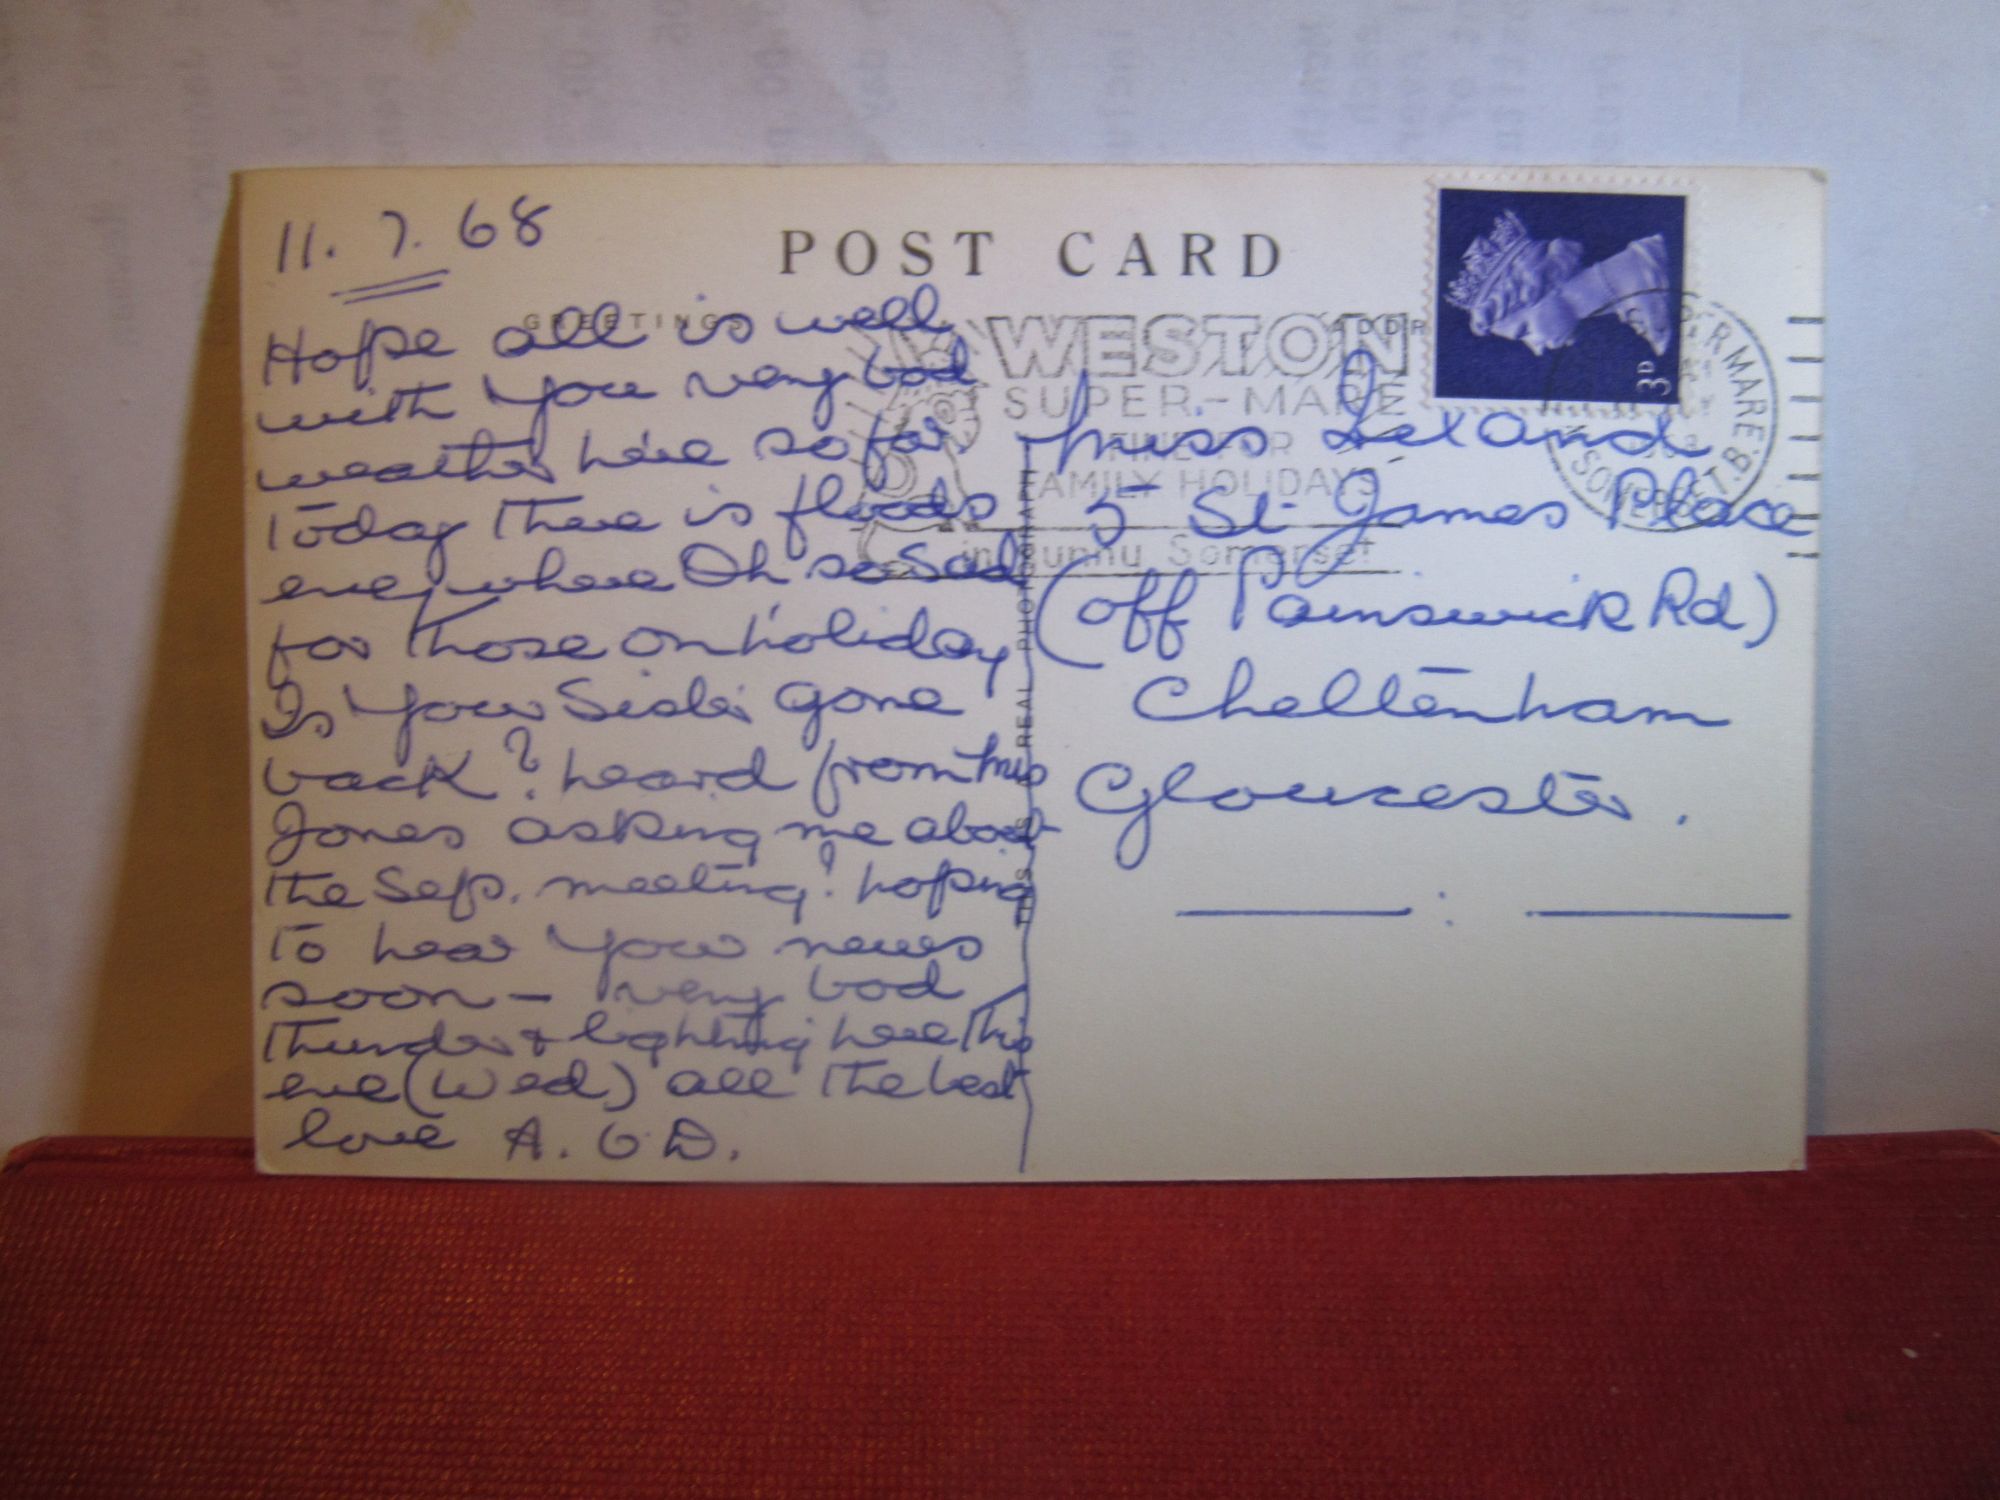 POST CARD
11. 7. 68
GREETINGS
Hope all is well
with you very bad
weather here so far
Today there is floods
everywhere Oh so sad
for those on holiday
Is your Sister gone
back? heard from Mrs
Jones asking me about
the Sep. meeting? hoping
To hear your news
soon - very bad
Thunder & lighting here this
eve (Wed) all the best
love A.
THIS IS A REAL PHOTOGRAPH
WESTON
SUPER-MARE
FOR
FAMILY HOLIDAYS
in Sunny Somerset
3D
SOMERSET
Miss Leland
5 St James Place
(off Painswick Rd)
Cheltenham
Gloucester.